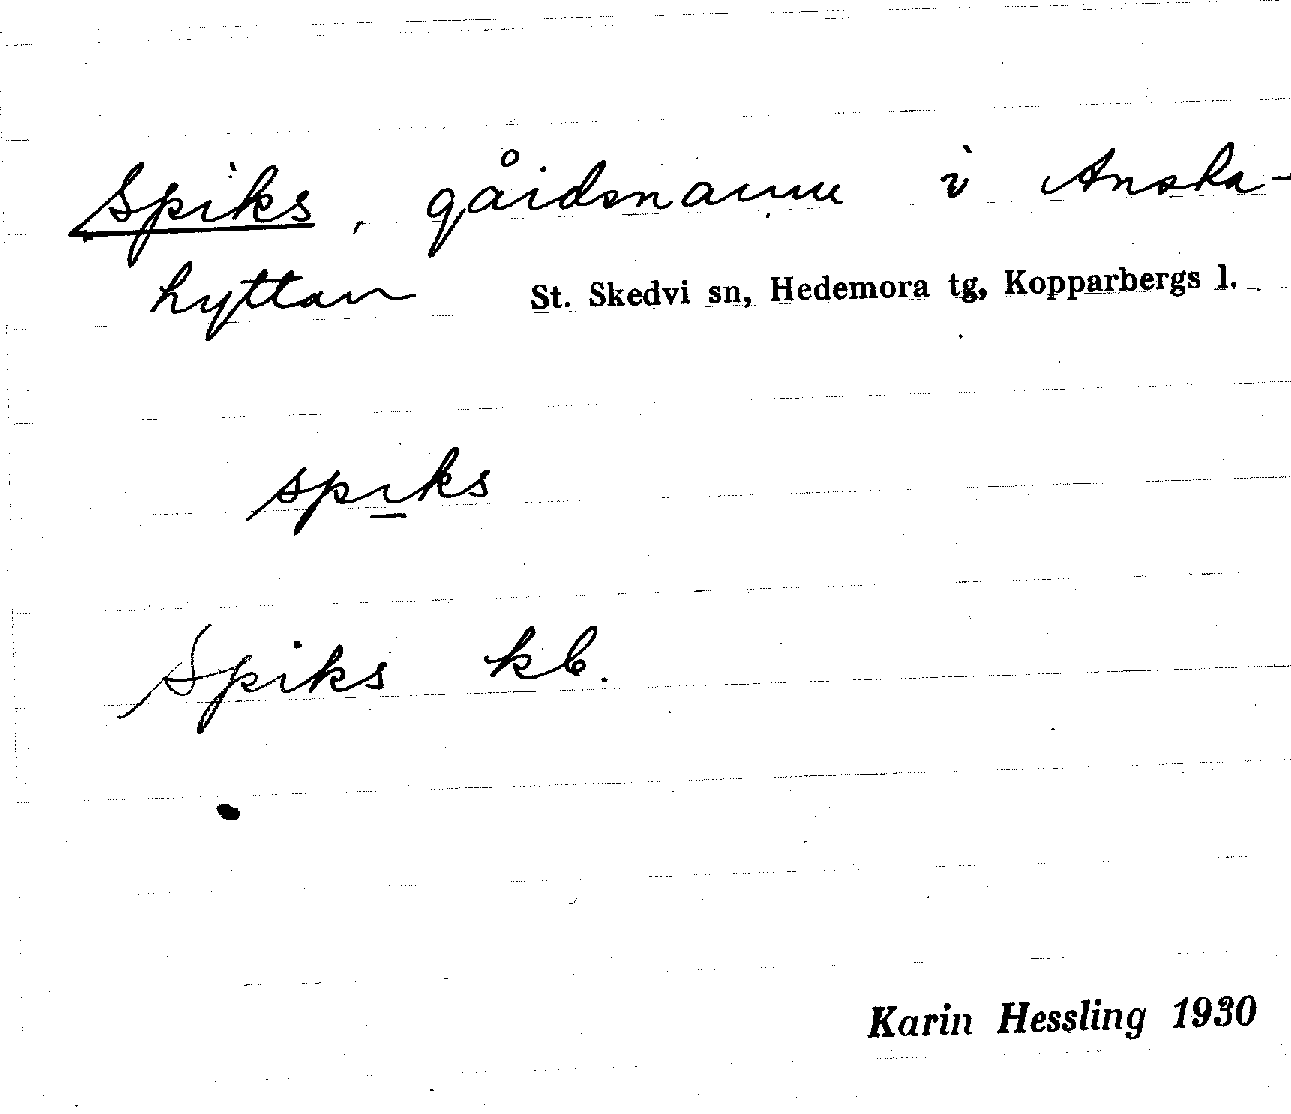 Spiks, gårdsnamn i Anska-
hyttan St. Skedvi sn, Hedemora tg, Kopparbergs l.
spıks
Spiks kb.
Karin Hessling 1930